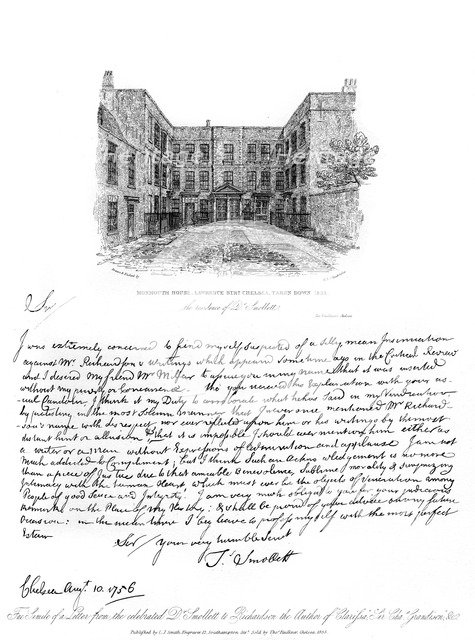 MONMOUTH HOUSE, LAWRENCE STRT CHELSEA, TAKEN DOWN 1835
the residence of Dr. Smollett.
Sir
I was extremely concerned to find myself suspected of a silly mean Insinuation
against Mr. Richardson's writings which appeared sometime ago in the Critical Review
and I desired my friend Mr. Millar to assure you in my name that it was inserted
without my privity or Concurrence. tho' you received the Explanation with your us-
ual Candour I think it my Duty to corroborate what he has said in my Vindication
by protesting in the most Solemn manner that I never once mentioned Mr. Richard-
son's name with disrespect nor ever reflected upon him or his writings by the most
distant hint or allusion & that it is impossible I should ever mention him either as
a writer or a man without Expressions of Veneration and applause I am not
much addicted to Compliment; but I think such an acknowledgement is no more
than a piece of Justice due to that amiable Benevolence, sublime morality & surprizing
Intimacy with the human Heart which must ever be the objects of Veneration among
People of good Sence and Integrity. I am very much obliged to you for your judicious
remarks on the Plan of my History: & shall be proud of your advice on any future
Occasion: in the mean time I beg leave to profess myself with the most perfect
Esteem
Sir your very humble Servt
Ts. Smollett
Chelsea Augt. 10. 1756
Fac Simile of a Letter from the celebrated Dr. Smollett to Richardson the Author of "Clarissa," "Sir Chas. Grandison," &c
Published by C. J. Smith, Engraver, Southampton Strt. Sold by Thos. Faulkner, Chelsea, 1835.
Heritage
Heritage